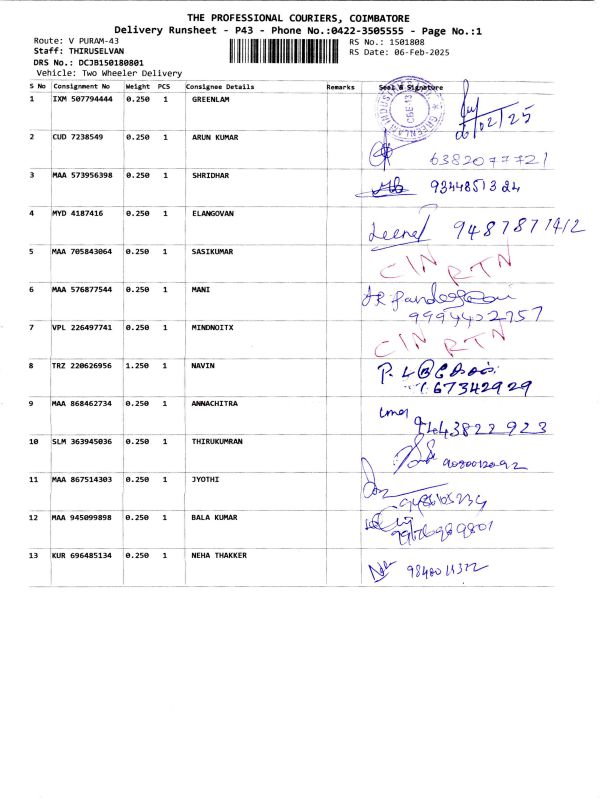 THE PROFESSIONAL COURIERS, COIMBATORE
Delivery Runsheet - P43 - Phone No.:0422-3505555 - Page No.:1
Route: V PURAM-43 RS No.: 1501808
Staff: THIRUSELVAN RS Date: 06-Feb-2025
DRS No.: DCJB150180801
Vehicle: Two Wheeler Delivery
S No Consignment No Weight PCS Consignee Details Remarks Seal & Signature
1 IXM 507794444 0.250 1 GREENLAM
06/02/25
2 CUD 7238549 0.250 1 ARUN KUMAR
6382077721
3 MAA 573956398 0.250 1 SHRIDHAR 9344851324
4 MYD 4187416 0.250 1 ELANGOVAN 9487877412
5 MAA 705843064 0.250 1 SASIKUMAR CIN RTN
6 MAA 576877544 0.250 1 MANI
7 VPL 226497741 0.250 1 MINDNOITX CIN RTN
8 TRZ 220626956 1.250 1 NAVIN
9 MAA 868462734 0.250 1 ANNACHITRA
10 SLM 363945036 0.250 1 THIRUKUMRAN
11 MAA 867514303 0.250 1 JYOTHI
12 MAA 945099898 0.250 1 BALA KUMAR
13 KUR 696485134 0.250 1 NEHA THAKKER